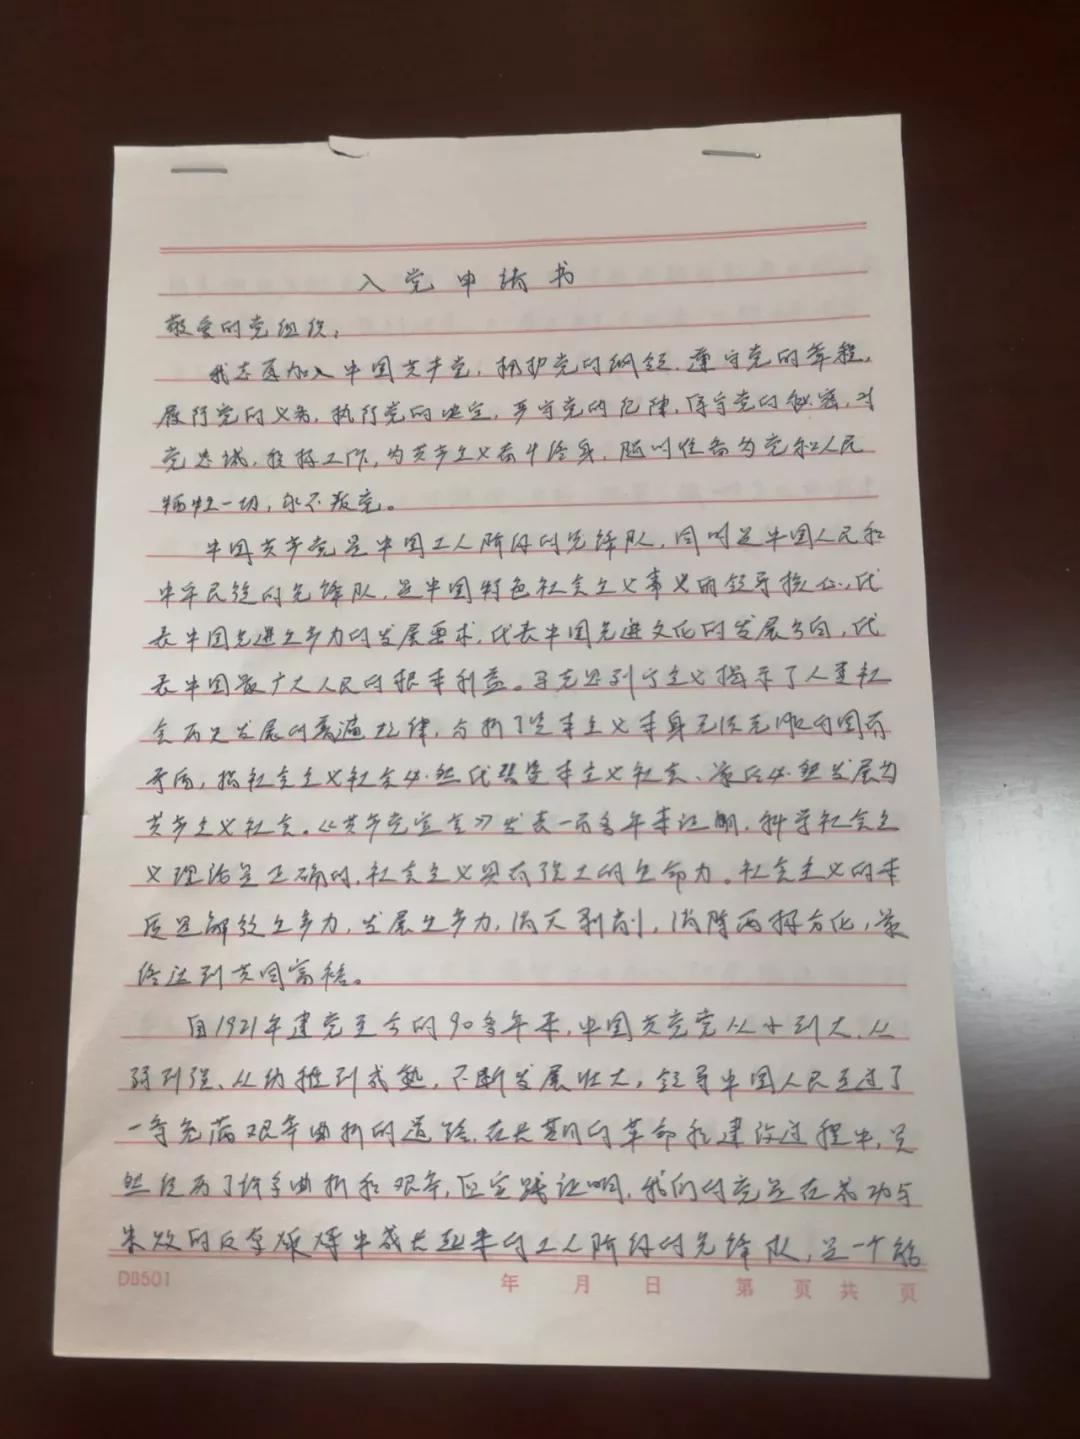 入党申请书
敬爱的党组织：
我志愿加入中国共产党，拥护党的纲领，遵守党的章程，
履行党的义务，执行党的决定，严守党的纪律，保守党的秘密，对
党忠诚，积极工作，为共产主义奋斗终身，随时准备为党和人民
牺牲一切，永不叛党。
中国共产党是中国工人阶级的先锋队，同时是中国人民和
中华民族的先锋队，是中国特色社会主义事业的领导核心，代
表中国先进生产力的发展要求，代表中国先进文化的发展方向，代
表中国最广大人民的根本利益。马克思列宁主义揭示了人类社
会历史发展的普遍规律，分析了资本主义本身无法克服的固有
矛盾，指社会主义社会必然代替资本主义社会、最后必然发展为
共产主义社会。《共产党宣言》发表一百多年来证明，科学社会主
义理论是正确的，社会主义具有强大的生命力。社会主义的本
质是解放生产力，发展生产力，消灭剥削，消除两极分化，最
终达到共同富裕。
自1921年建党至今的90多年来，中国共党党从小到大、从
弱到强、从幼稚到成熟，不断发展壮大，领导中国人民走过了
一条充满艰辛曲折的道路，在长期的革命和建设过程中，虽
然经历了许多曲折和艰辛，但实践证明，我们的党是在成功与
失败的反复磨炼中成长起来的工人阶级的先锋队，是一个能
DB501 年 月 日 第 页 共 页